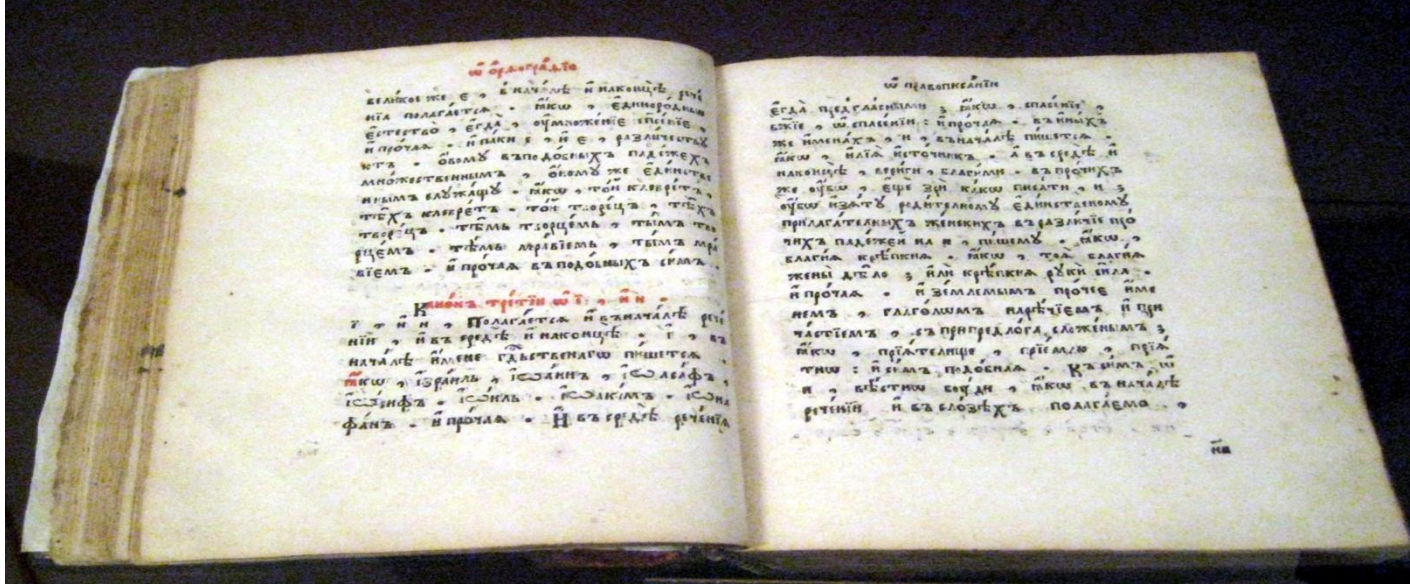 ѡ҆ ѻ҆рѳогра́фїѝ
вели́кое же є , в̾нача́лѣ и҆ наконцѣ̀ рече́
нїѧ полага́етсѧ . ꙗ҆́кѡ , є҆диноро́дным
є҆стество̀ , є҆гда̀ , ᲂу҆множе́нїе спс҃е́нїе ,
и҆ про́чаѧ . и҆ па́ки е , и҆ є , разли́чествꙋ
ютъ . ѻ҆́вомꙋ въ подо́бныхъ паде́жехъ
мно́жественнымъ , ѻ҆́вомꙋ же є҆ди́нстве
ннымъ слꙋжа́щꙋ . ꙗ҆́кѡ , то́й клеврѐтъ ,
тѣ́хъ клевре́тъ . то́й творе́цъ , тѣ́хъ
тво́рецъ . тѣ́мъ творце́мъ , ты́мъ тво
рце́мъ . тѣ́мъ мра́вїемъ , ты́мъ мра́
вїемъ . и҆ про́чаѧ въ подо́бныхъ си́мъ .
Кано́нъ тре́тїй ѡ҆ ї , и҆ и .
ї , и҆ и , Полага́етсѧ и҆ въ нача́лѣ рече́
нїй , и҆ въ средѣ̀ и҆ наконцѣ̀ . ї , въ
нача́лѣ и҆́мене гдⷭ҇ьственагѡ пи́шетсѧ .
ꙗ҆́кѡ , і҆зра́иль , і҆ѡа́ннъ , і҆ѡаса́фъ ,
і҆ѡ́сифъ . і҆ѡи́ль . і҆ѡаки́мъ . і҆ѡна
фа́нъ . и҆ про́чаѧ . И҆ въ средѣ̀ рече́нїѧ
ѡ҆ правописа́нїи
є҆гда̀ пред̾ гла́сными : ꙗ҆́кѡ , спасе́нїе ,
бж҃їе , ѡ҆ спасе́нїи : и҆ про́чаѧ . въ и҆ны́хъ
же и҆мена́хъ , и , въ нача́лѣ пи́шетсѧ .
ꙗ҆́кѡ , и҆лїѧ̀ и҆сто́чникъ . а҆ въ средѣ̀ и҆
наконцѣ̀ , вери́ги , благи́ми . въ про́чихъ
же ᲂу҆́бѡ , є҆щѐ зрѝ ка́кѡ писа́ти , и ꙁ
ᲂу҆́бѡ и҆з̾ѧ́тꙋ роди́телномꙋ є҆ди́нственомꙋ
прилага́телныхъ же́нскихъ въ разли́чїе про́
чихъ паде́жей на и , пи́шемꙋ . ꙗ҆́кѡ ,
благи́ѧ крѣ́пкиѧ . ꙗ҆́кѡ , тоѧ̀ благи́ѧ
жены̀ дѣ́ло ꙁ и҆лѝ крѣ́пкиѧ рꙋкѝ си́ла .
и҆ про́чаѧ . и҆ зе́млемымъ про́чее и҆́ме
нем , глаго́лѡмъ нарѣ́чїемъ и҆ при
ча́стїемъ , съ при предло́га сло́женымъ ꙁ
ꙗ҆́кѡ , прїѧ́телище , прїе́млю , прїѧ́
тнѡ : и҆ си́мъ подо́бнаѧ . Къ си́мъ ѡ҆
и , вѣ́стнѡ бꙋ́ди , ꙗ҆́кѡ въ нача́лѣ
рече́нїй и҆ въ сло́зѣхъ полага́емо ,